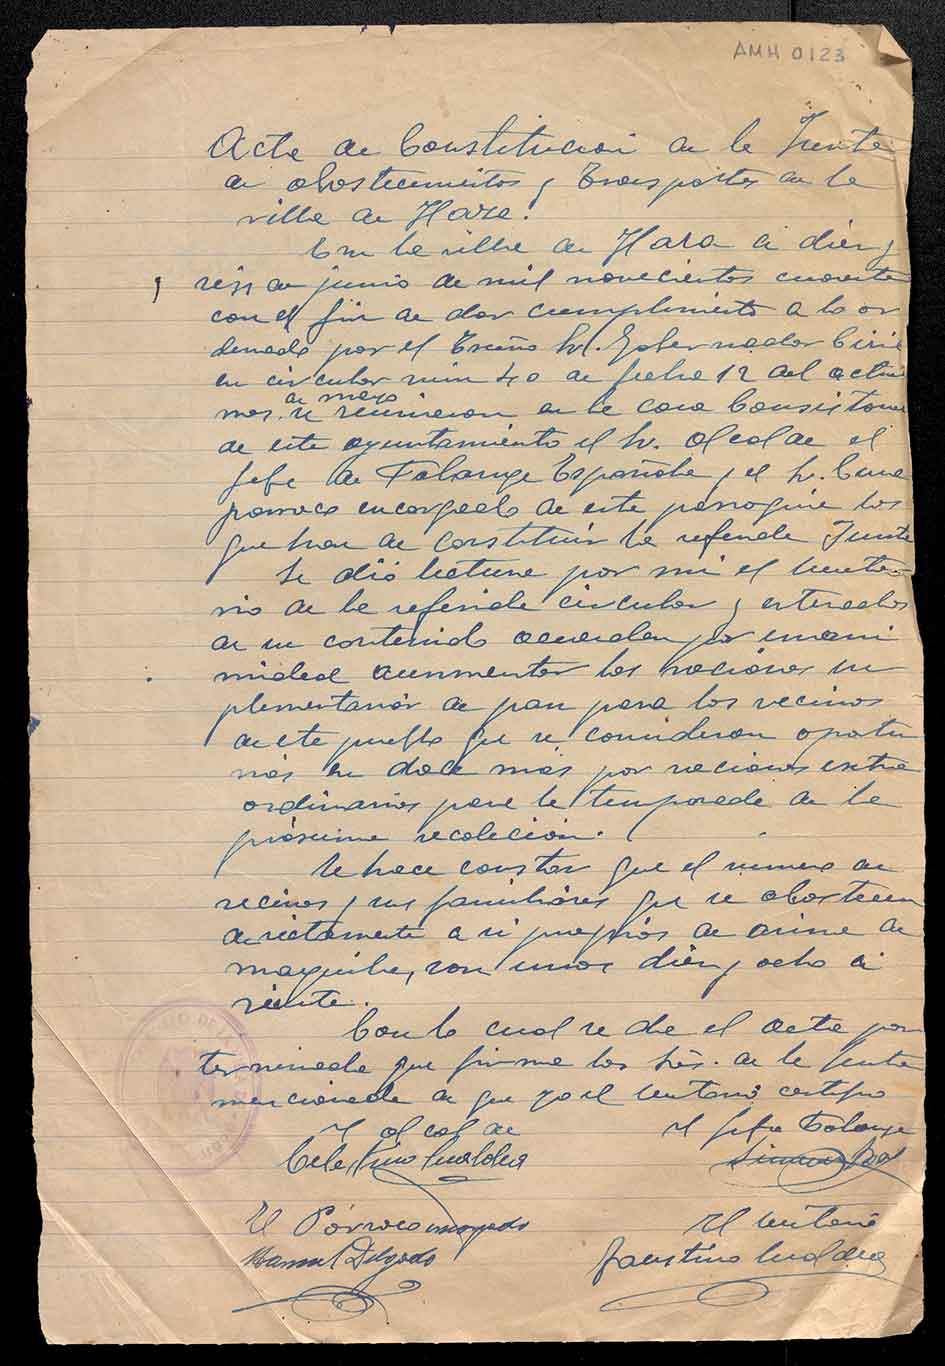 AMH 0123
Acta de Constitucion de la Junta
de abastecimientos y Trasportes de la
villa de Haza.
En la villa de Haza a diez y
seis de junio de mil novecientos cuarenta
con el fin de dar cumplimiento a lo or
denado por el Excmo Sr. Gobernador Civil
en circular num 40 de fecha 12 del actual
de mayo
mes. se reunieron en la casa Consistorial
de este ayuntamiento el Sr. Alcalde el
Jefe de Falange Española y el Sr. Cura
parroco encargado de esta parroquia los
que han de constituir la referida Junta
Se dió lectura por mi el Secreta
rio de la referida circular y enterados
de su contenido acuerdan por unani
midad aummentar las raciónes su
plementarias de pan para los vecinos
de este pueblo que se consideran oportu
nas en doce mas por raciones extra
ordinarias para la temporada de la
próxima recoleción.
Se hace constar que el numero de
vecinos y sus familiáres que se abastecen
directamente a si propios de arina de
maquila, son unos diez y ocho a
veinte.
Con lo cual se da el acta por
terminada que firma los Srs. de la Junta
mencionada de que yo el Secretario certifico
El alcalde
El Jefe Falange
Celestino
El Párroco encargado
El Secretario
Manuel Delgado
Faustino